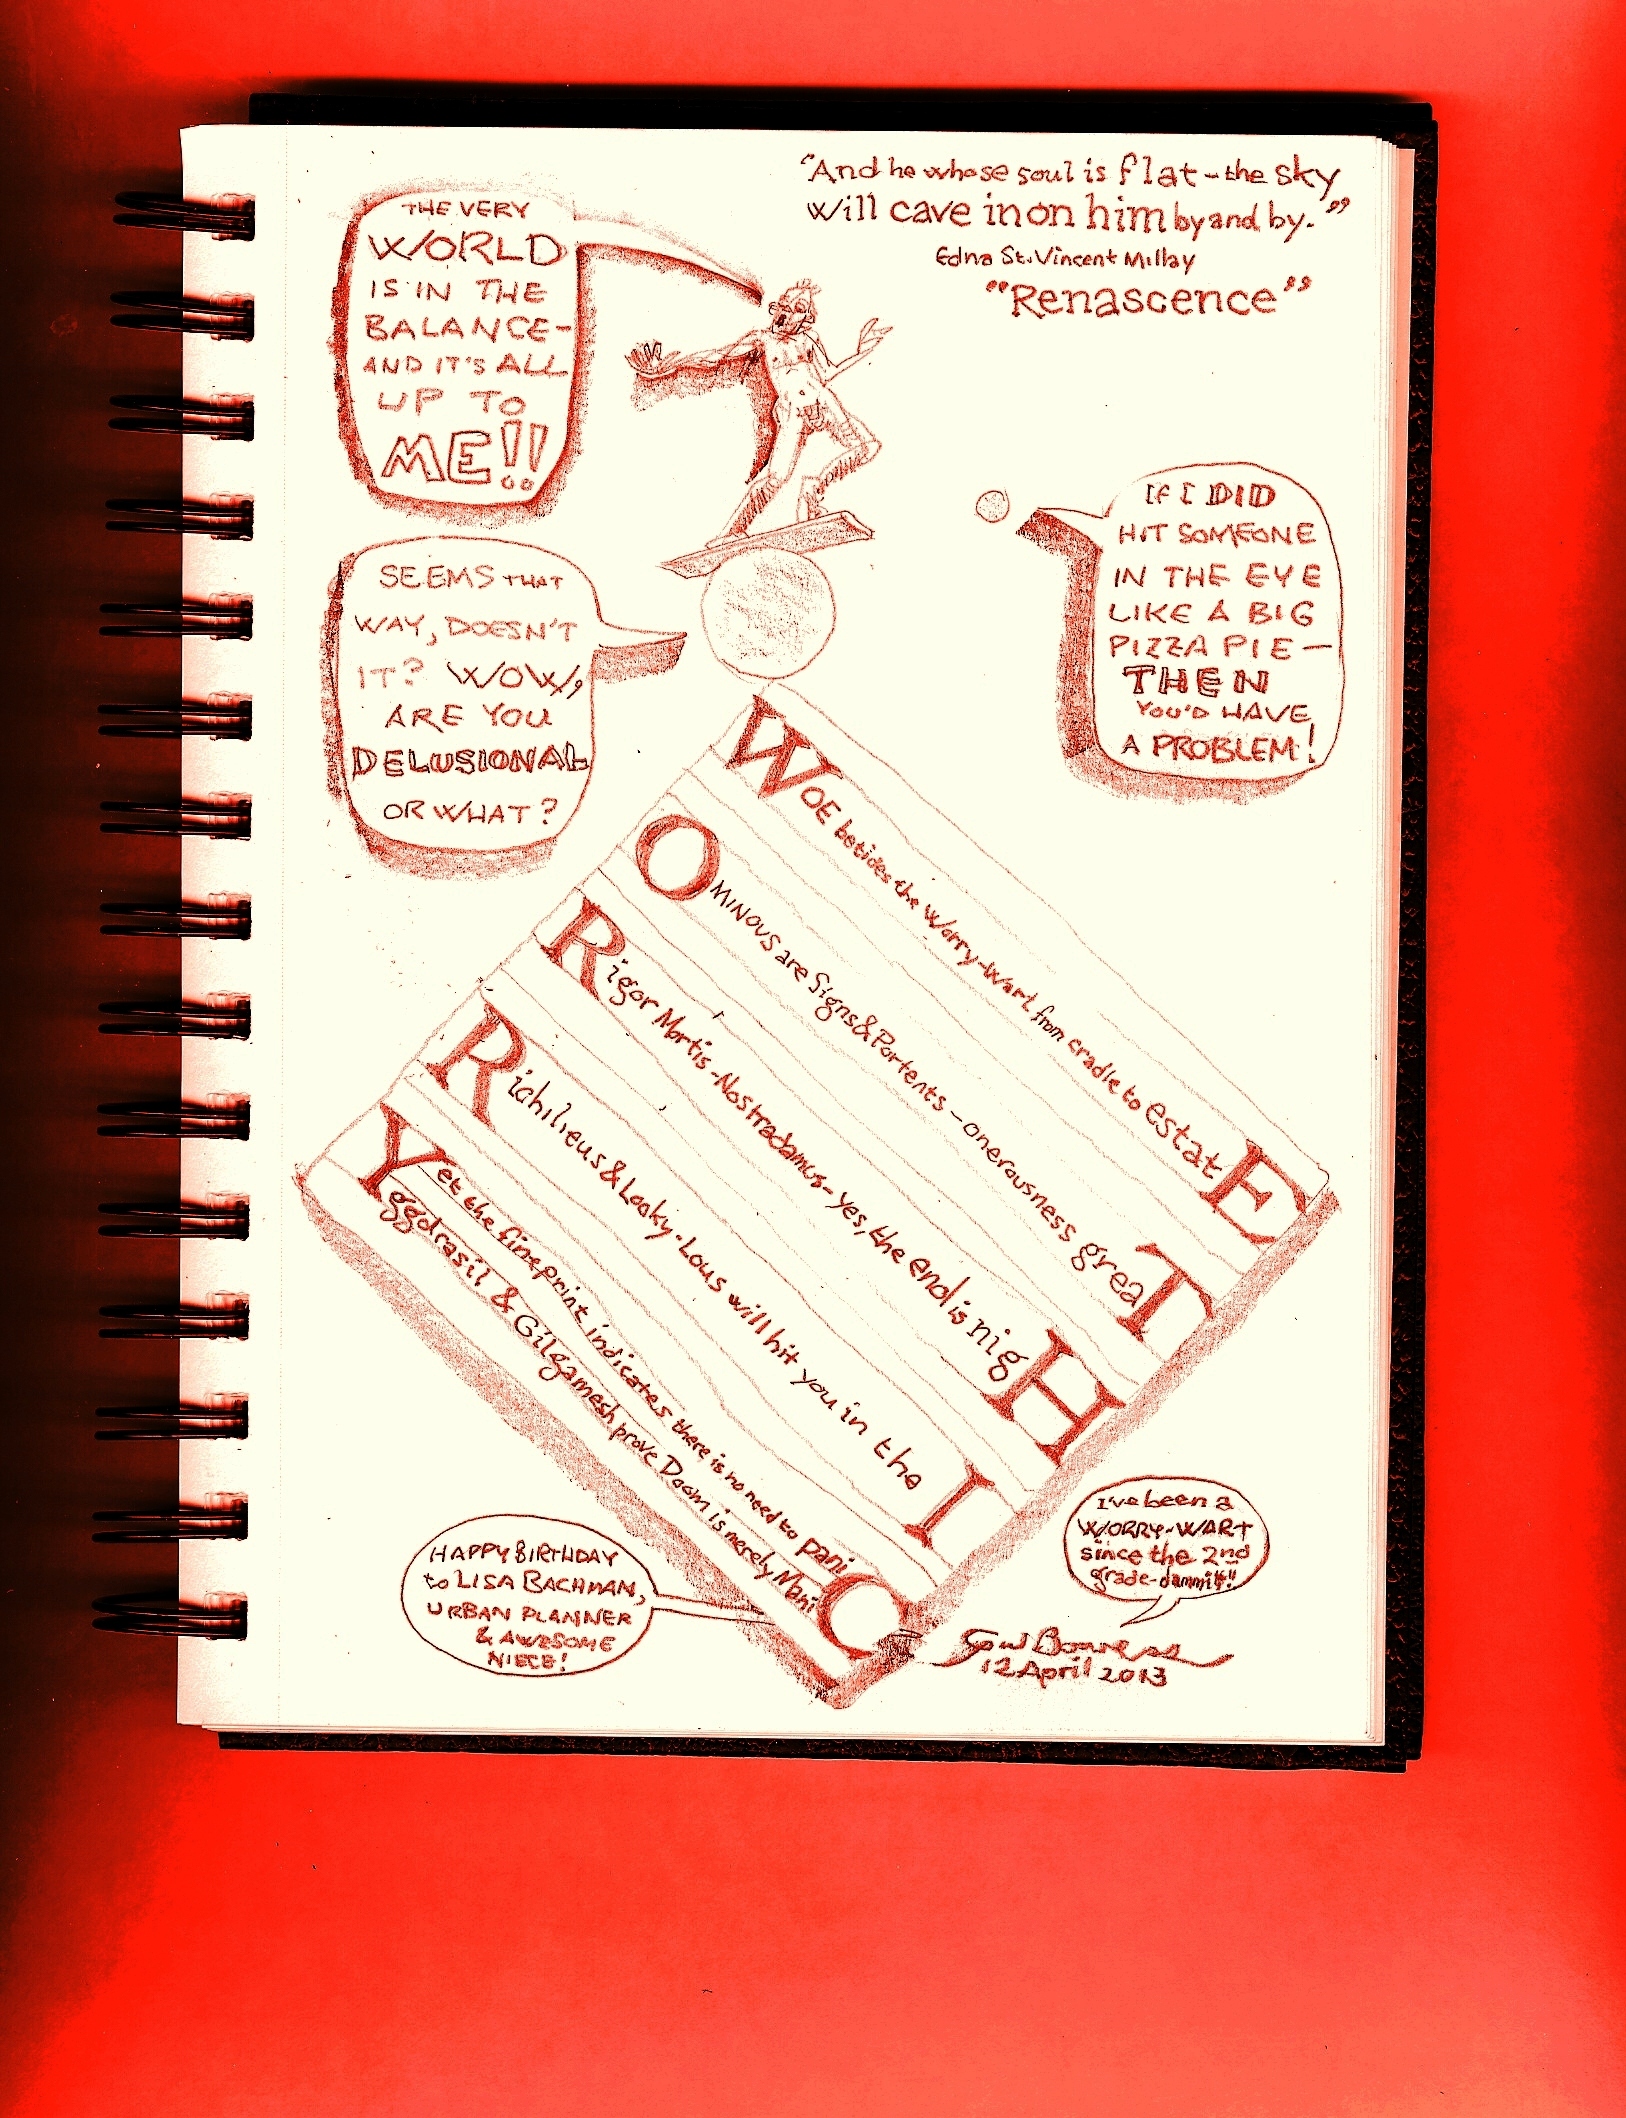 "And he whose soul is flat - the sky
will cave in on him by and by."
Edna St. Vincent Millay
"Renascence"
THE VERY
WORLD
IS IN THE
BALANCE-
AND IT'S ALL
UP TO
ME!!
SEEMS THAT
WAY, DOESN'T
IT? WOW,
ARE YOU
DELUSIONAL
OR WHAT?
IF I DID
HIT SOMEONE
IN THE EYE
LIKE A BIG
PIZZA PIE-
THEN
YOU'D HAVE
A PROBLEM!
WOE betides the Worry-Wart from cradle to estatE
OMINOUS are Signs & Portents - onerousness greaT
Rigor Mortis - Nostradamus - yes, the end is nigH
Richilieus & Leaky-Lous will hit you in the I
Yet the fine print indicates there is no need to paniC
Yggdrasil & Gilgamesh prove Doom is merely ManiC
HAPPY BIRTHDAY
to LISA BACHMAN,
URBAN PLANNER
& AWESOME
NIECE!
I've been a
WORRY-WART
since the 2nd
grade-dammit!!
12 April 2013